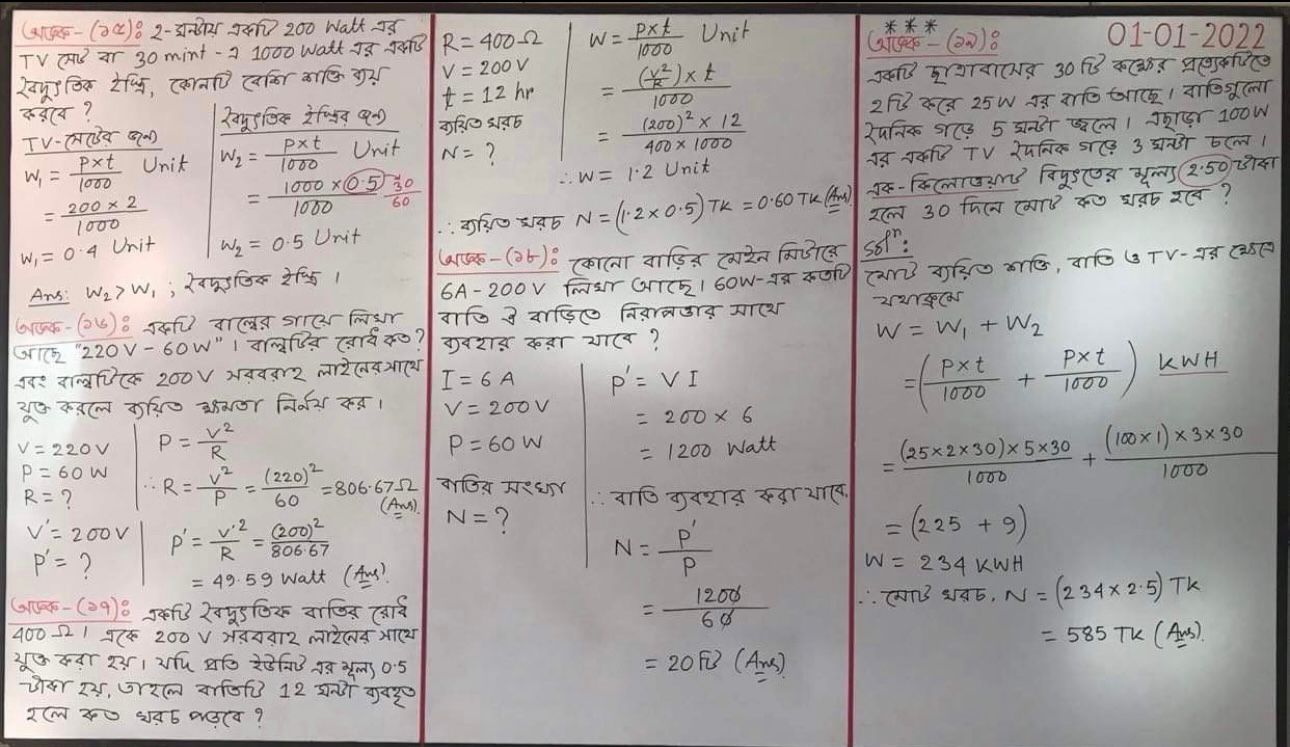 অংক-(১৫)ঃ ২-ঘন্টায় একটি 200 Watt এর
TV সেট বা 30 mint - এ 1000 Watt এর একটি
বৈদ্যুতিক ইস্ত্রি, কোনটি বেশি শক্তি ব্যয়
করবে ?
TV-সেটের জন্য
W₁ = P×t/1000 Unit
= 200 × 2/1000
W₁ = 0.4 Unit
বৈদ্যুতিক ইস্ত্রির জন্য
W₂ = P×t/1000 Unit
= 1000 × 0.5/1000 30/60
W₂ = 0.5 Unit
Ans: W₂ > W₁ ; বৈদ্যুতিক ইস্ত্রি ।
অংক-(১৬)ঃ একটি বাল্বের গায়ে লিখা
আছে "220V - 60W" । বাল্বটির রোধ কত ?
এবং বাল্বটিকে 200V সরবরাহ লাইনের সাথে
যুক্ত করলে ব্যয়িত ক্ষমতা নির্নয় কর ।
V = 220V
P = 60 W
R = ?
V' = 200V
P' = ?
P = V²/R
∴ R = V²/P = (220)²/60 = 806.67Ω (Ans).
P' = V'²/R = (200)²/806.67
= 49.59 Watt (Ans).
অংক-(১৭)ঃ একটি বৈদ্যুতিক বাতির রোধ
400 Ω । একে 200 V সরবরাহ লাইনের সাথে
যুক্ত করা হয় । যদি প্রতি ইউনিট এর মূল্য 0.5
টাকা হয়, তাহলে বাতিটি 12 ঘন্টা ব্যবহৃত
হলে কত খরচ পড়বে ?
R = 400Ω
V = 200V
t = 12 hr
ব্যয়িত খরচ
N = ?
W = P×t/1000 Unit
= (V²/R) × t/1000
= (200)² × 12/400 × 1000
∴ W = 1.2 Unit
∴ ব্যয়িত খরচ N = (1.2 × 0.5) TK = 0.60 TK (Ans)
অংক-(১৮)ঃ কোনো বাড়ির মেইন মিটারে
6A - 200V লিখা আছে । 60W-এর কতটি
বাতি ঐ বাড়িতে নিরাপত্তার সাথে
ব্যবহার করা যাবে ?
I = 6 A
V = 200V
P = 60 W
বাতির সংখ্যা
N = ?
P' = V I
= 200 × 6
= 1200 Watt
∴ বাতি ব্যবহার করা যাবে,
N = P'/P
= 1200/60
= 20 টি (Ans)
* * *
অংক-(১৯)ঃ
01-01-2022
একটি ছাত্রাবাসের 30 টি কক্ষের প্রত্যেকটিতে
2টি করে 25W এর বাতি আছে । বাতিগুলো
দৈনিক গড়ে 5 ঘন্টা জ্বলে । এছাড়া 100W
এর একটি TV দৈনিক গড়ে 3 ঘন্টা চলে ।
এক-কিলোওয়াট বিদ্যুতের মূল্য 2.50 টাকা
হলে 30 দিনে মোট কত খরচ হবে ?
Solⁿ:
মোট ব্যয়িত শক্তি, বাতি ও TV-এর ক্ষেত্রে
যথাক্রমে
W = W₁ + W₂
= (P×t/1000 + P×t/1000) KWH
= (25×2×30)×5×30/1000 + (100×1)×3×30/1000
= (225 + 9)
W = 234 KWH
∴ মোট খরচ, N = (234 × 2.5) TK
= 585 TK (Ans).